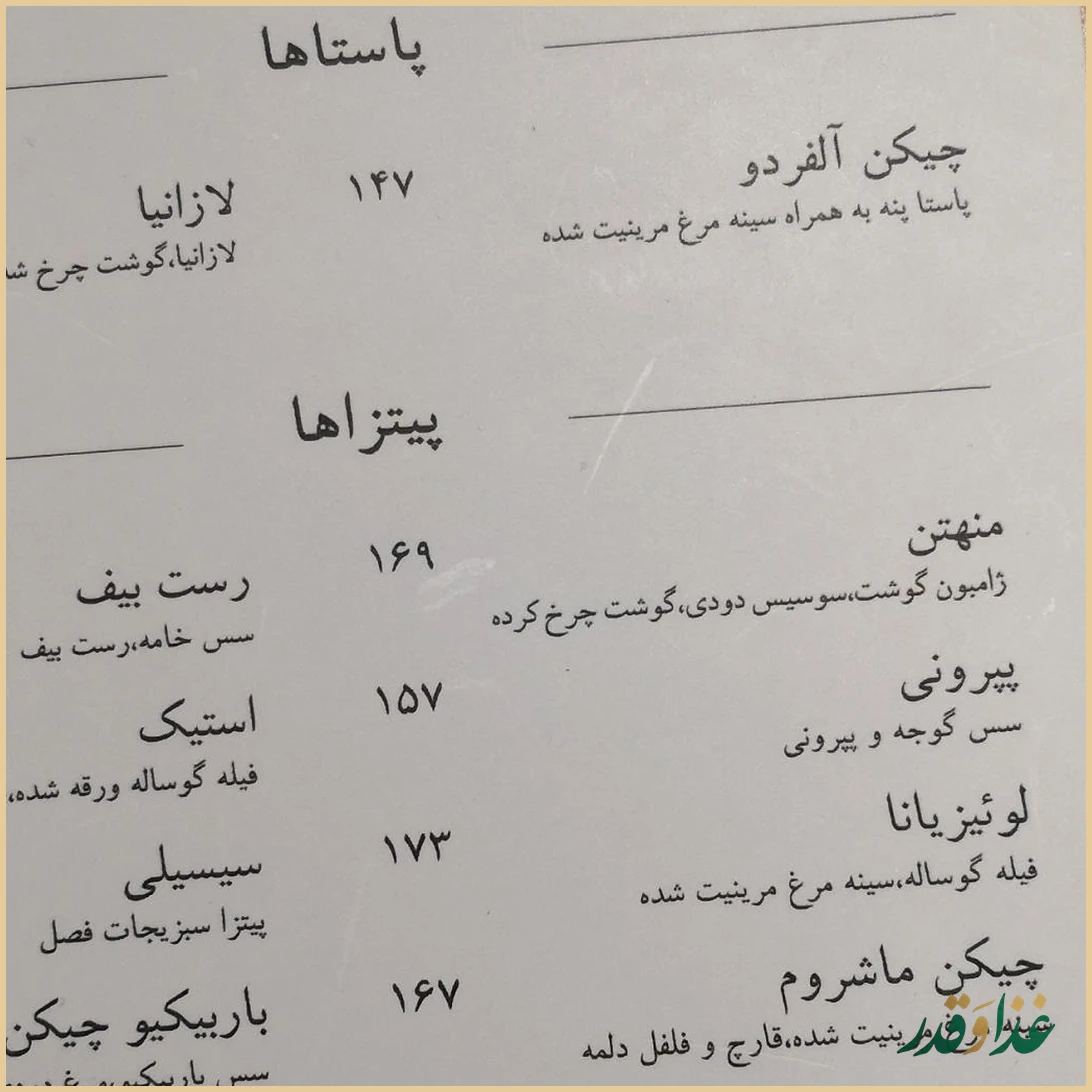 پاستاها
چیکن آلفردو
۱۴۷
پاستا پنه به همراه سینه مرغ مرینیت شده
لازانیا
لازانیا،گوشت چرخ
پیتزاها
منهتن
۱۶۹
ژامبون گوشت،سوسیس دودی،گوشت چرخ کرده
پپرونی
۱۵۷
سس گوجه و پپرونی
لوئیزیانا
۱۷۳
فیله گوساله،سینه مرغ مرینیت شده
چیکن ماشروم
۱۶۷
سینه مرغ مرینیت شده،قارچ و فلفل دلمه
رست بیف
سس خامه،رست بیف
استیک
فیله گوساله ورقه شده،
سیسیلی
پیتزا سبزیجات فصل
باربیکیو چیکن
سس باربیکیو،مرغ
غذا و قدر